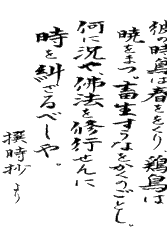 彼の時鳥は春ををくり、鶏鳥は
暁をまつ。畜生すらなをかくのごとし。
何に況や、佛法を修行せんに
時を糾ざるべしや。
撰時抄より